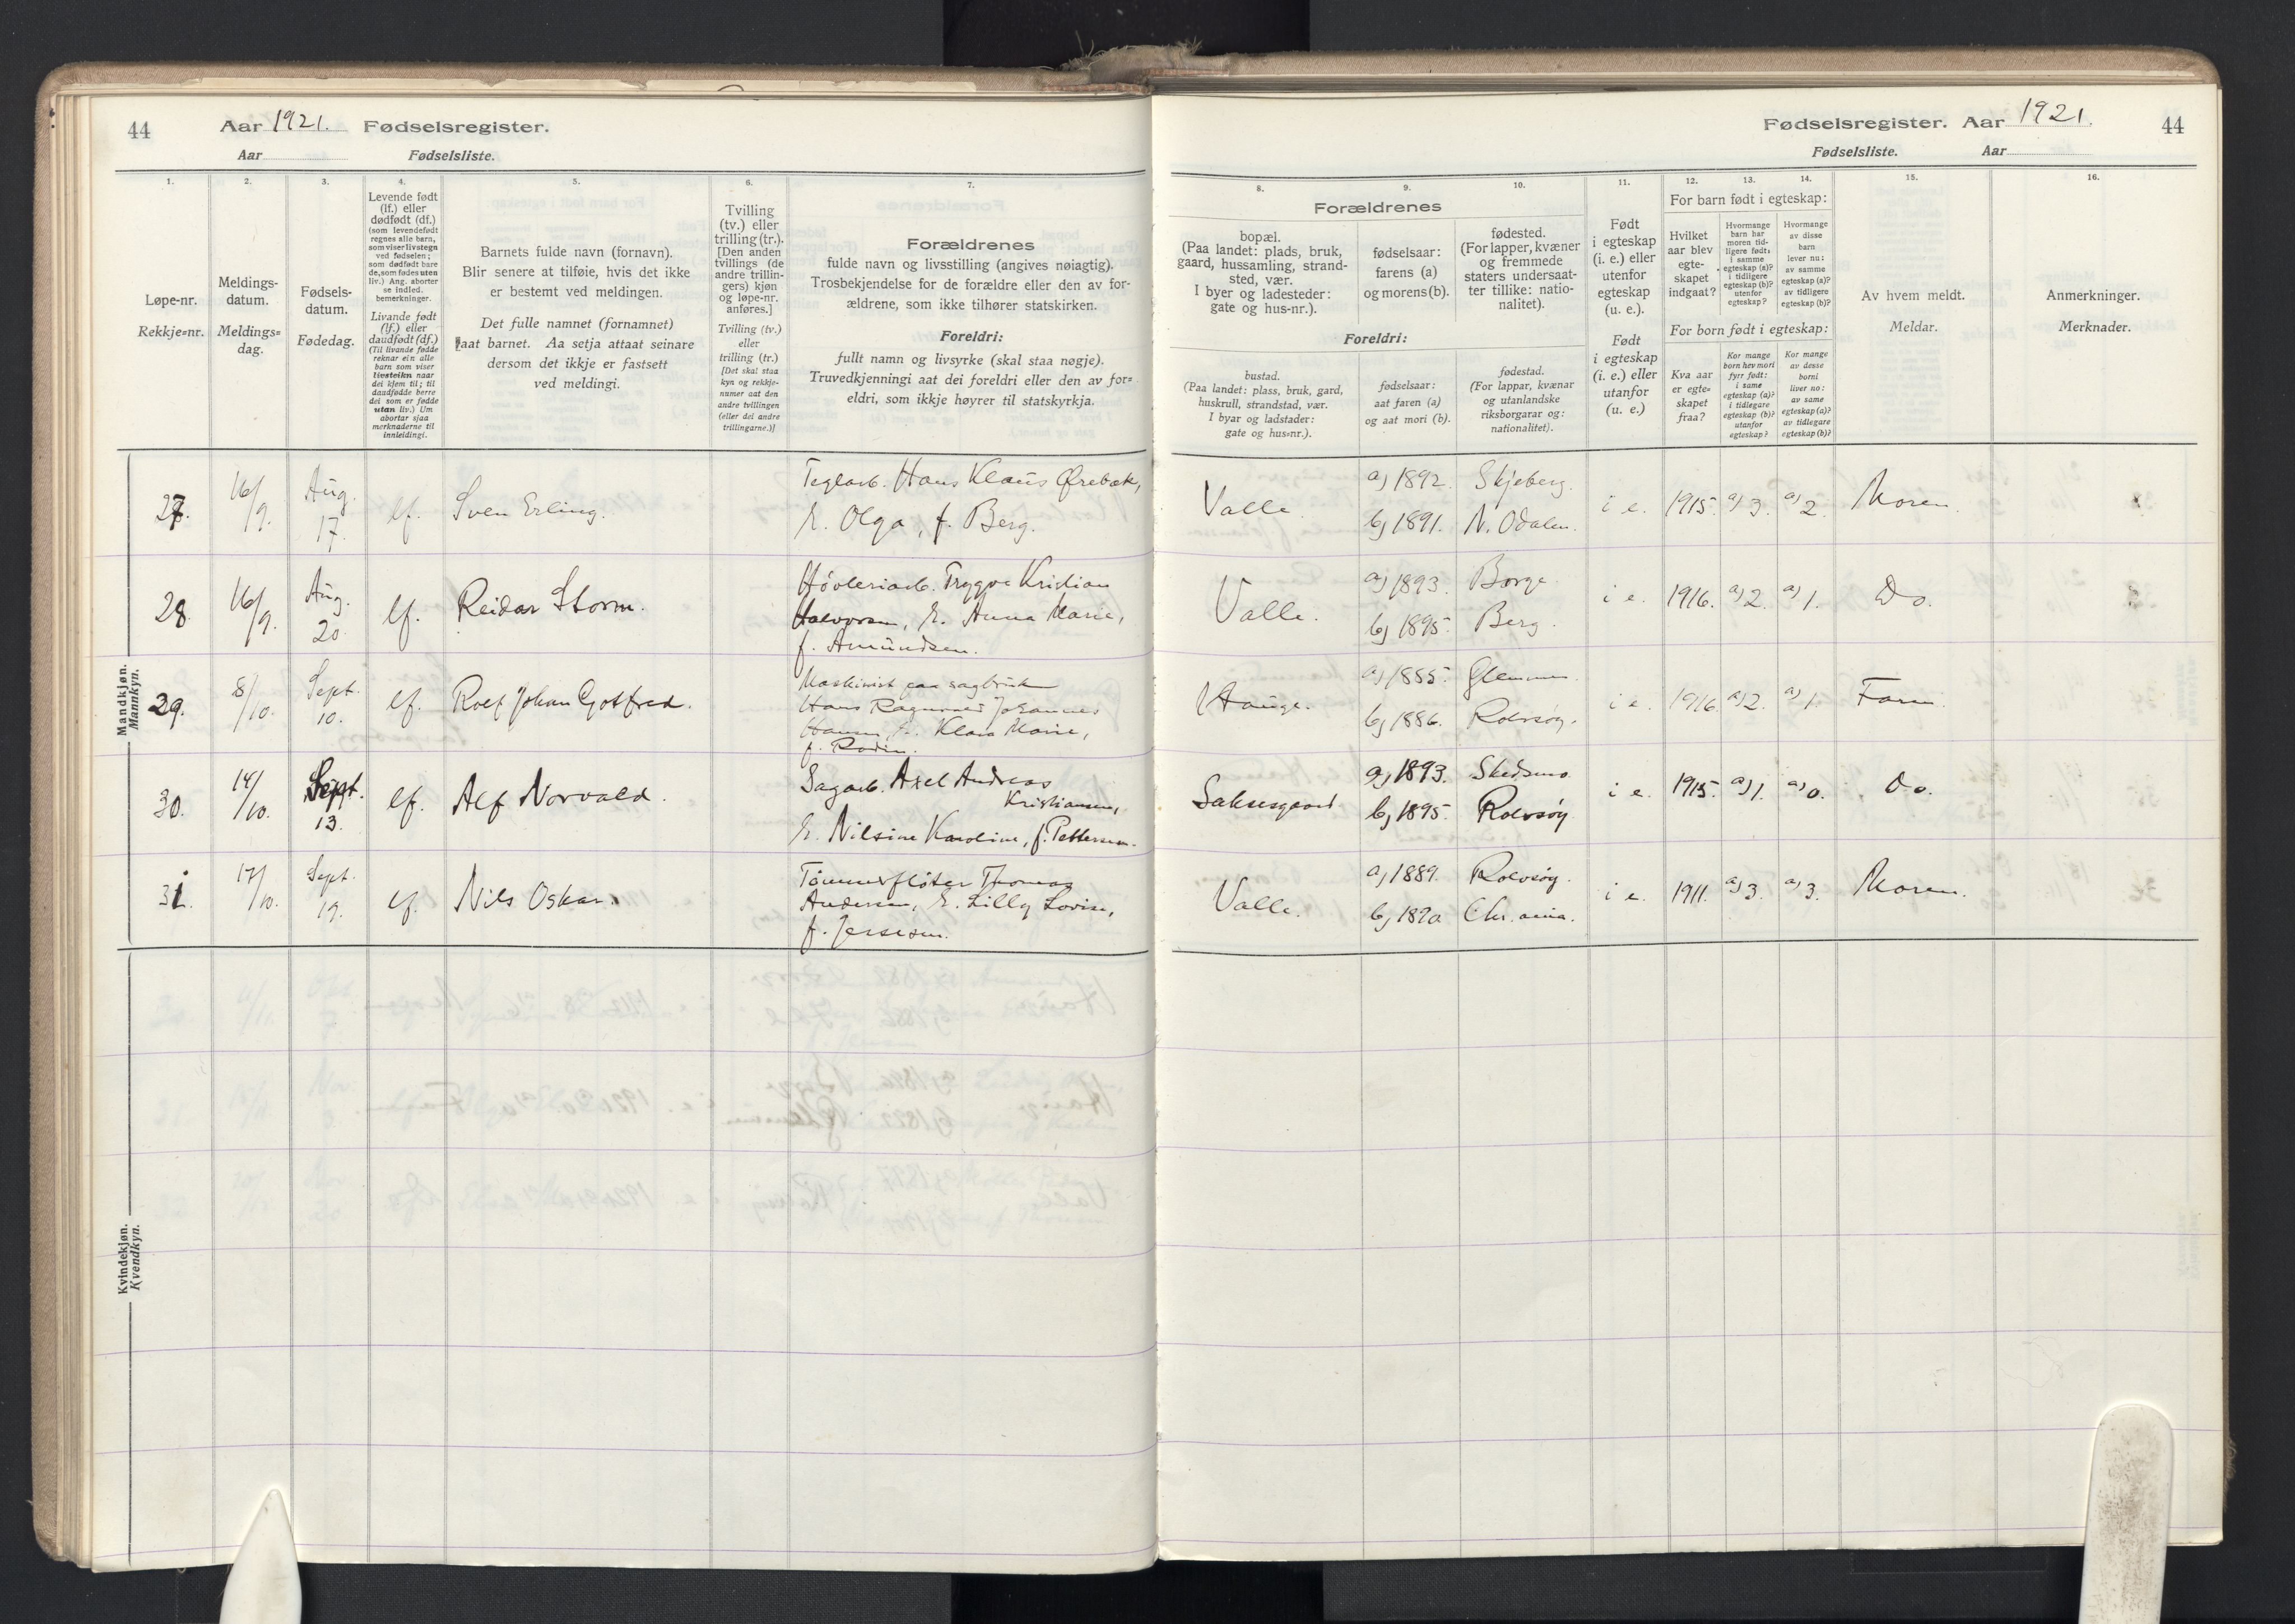 44
Aar 1921. Fødselsregister.
Aar Fødselsliste.
1.
2.
3.
4.
5.
6.
7.
Løpe-nr.
Rekkje=nr.
Meldings-
datum.
Meldings=
dag.
Fødsels-
datum.
Fødedag.
Levende født
(lf.) eller
dødfødt (df.)
(som levendefødt
regnes alle barn,
som viser livstegn
ved fødselen;
som dødfødt bare
de, som fødes uten
liv.) Ang. aborter
se indled.
bemerkninger.
Livande født
(lf.) eller
daudfødt (df.)
(Til livande fødde
reknar ein alle
barn som viser
livsteikn naar
dei kjem til; til
daadfødde berre
dei som er fødde
utan liv.) Um
abortar sjaa
merknaderne til
innleidingi.
Barnets fulde navn (fornavn).
Blir senere at tilføie, hvis det ikke
er bestemt ved meldingen.
Det fulle namnet (fornamnet)
aat barnet. Aa setja attaat seinare
dersom det ikkje er fastsett
ved meldingi.
Tvilling
(tv.) eller
trilling (tr.).
[Den anden
tvillings (de
andre trillin-
gers) kjøn
og løpe-nr.
anføres.]
Tvilling (tv.)
eller
trilling (tr.)
[Det skal staa
kyn og rekkje-
numer aat den
andre tvillingen
(eller dei andre
trillingarne.)]
Forældrenes
fulde navn og livsstilling (angives nøiagtig).
Trosbekjendelse for de forældre eller den av for-
ældrene, som ikke tilhører statskirken.
Foreldri:
fullt namn og livsyrke (skal staa nøgje).
Truvedkjenningi aat dei foreldri eller den av for=
eldri, som ikkje høyrer til statskyrkja.
Mandkjøn.
Mannkyn.
27. 16/9. Aug. 17. lf. Sven Erling. Teglarb. Hans Klaus Ørebæk,
H. Olga, f. Berg.
28. 16/9. Aug. 20. lf. Reidar Storm. Høvleriarb. Trygve Kristian
Halvorsen, H. Anna Marie,
f. Amundsen.
29. 8/10. Sept. 10. lf. Rolf Johan Gotfred. Maskinist paa sagbruk
Hans Ragnvald Johannes
Hansen, H. Klara Marie,
f. Rodin.
30. 14/10. Sept. 13. lf. Alf Norvald. Sagarb. Axel Andreas
Kristiansen,
H. Nilsine Karoline, f. Pettersen.
31. 17/10. Sept. 19. lf. Nils Oskar. Tømmerfløter Thomas
Andersen, H. Lilly Lovise,
f.
Kvindekjøn.
Kvendkyn.
Fødselsregister. Aar 1921. 44
Fødselsliste. Aar
8.
9.
10.
11.
12.
13.
14.
15.
16.
Forældrenes
bopæl.
(Paa landet: plads, bruk,
gaard, hussamling, strand-
sted, vær.
I byer og ladesteder:
gate og hus-nr.).
fødselsaar:
farens (a)
og morens (b).
fødested.
(For lapper, kvæner
og fremmede
staters undersaat-
ter tillike: natio-
nalitet).
Foreldri:
bustad.
(Paa landet: plass, bruk, gard,
huskrull, strandstad, vær.
I byar og ladstader:
gate og hus=nr.).
fødselsaar:
aat faren (a)
og aat mori (b).
fødestad.
(For lappar, kvænar
og utanlandske
riksborgarar og:
nationalitet).
Født
i egteskap
(i. e.) eller
utenfor
egteskap
(u. e.).
Født
i egteskap
(i. e.) eller
utanfor
(u. e.)
For barn født i egteskap:
Hvilket
aar blev
egte-
skapet
indgaat?
Hvormange
barn har
moren tid-
ligere født,
i samme
egteskap (a)?
i tidligere
egteskap (b)?
utenfor
egteskap?
Hvormange
av disse
barn
lever nu:
av samme
egteskap (a)?
av tidligere
egteskap (b)?
For born født i egteskap:
Kva aar
er egte=
skapet
fraa?
Kor mange
born hev mori
fyrr født:
i same
egteskap (a)?
i tidlegare
egteskap (b)?
utanfor
egteskap?
Kor mange
av desse
borni
liver no:
av same
egteskap (a)?
av tidlegare
egteskap (b)?
Av hvem meldt.
Meldar.
Anmerkninger.
Merknader.
Valle. a) 1892. Skjeberg.
b) 1891. N. Odalen. i e. 1915. a) 3. a) 2. Moren.
Valle. a) 1893. Borge
b) 1895. Berg. i e. 1916. a) 2. a) 1. Do.
Hauge. a) 1885. Glemmen.
b) 1886. Rolvsøy. i e. 1916. a) 2. a) 1. Faren.
Saksegaard a) 1893. Skedsmo
b) 1895. Rolvsøy i e. 1915. a) 1. a) 0. Do.
Valle. a) 1889. Rolvsøy.
b) 1890 Chr.ania. i e. 1911. a) 3. a) 3. Moren.